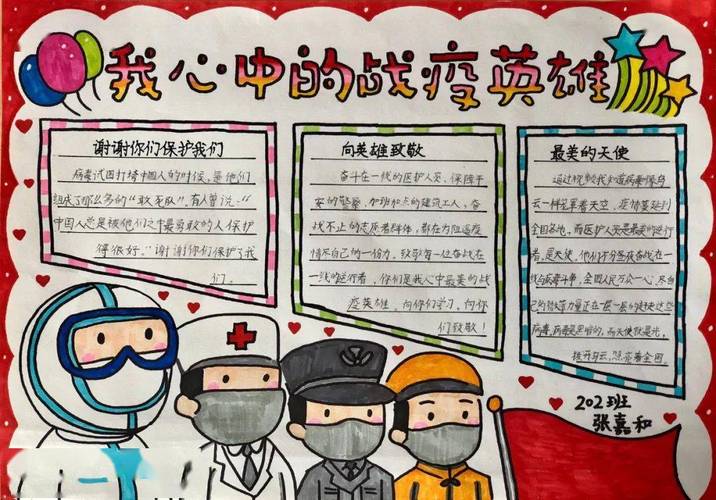 我心中的战疫英雄
谢谢你们保护我们
病毒试图打垮中国人的时候，是他们
组成了那么多的“敢死队”有人曾说：“
中国人总是被他们之中最勇敢的人保护
得很好。”谢谢你们保护了我
们。
向英雄致敬
奋斗在一线的医护人员、保障平
安的警察、加班加点的建筑工人、奋
战不止的志愿者群体，都在为阻遏疫
情尽自己的一份力。致敬每一位奋战在
一线的逆行者，你们是我心中最美的战
疫英雄，向你们学习，向你
们致敬！
最美的天使
通过视频我知道病毒像乌
云一样笼罩着天空，疫情蔓延到
全国各地，而医护人员是最美的逆行
者，是天使，他们不分昼夜奋战在一
线与病毒斗争，全国人民万众一心，尽自
己的微薄力量正在一层一层的赶快这些
病毒，病毒是黑暗的，而天使就是光，
拨开乌云，照亮着全国
202班
张嘉和